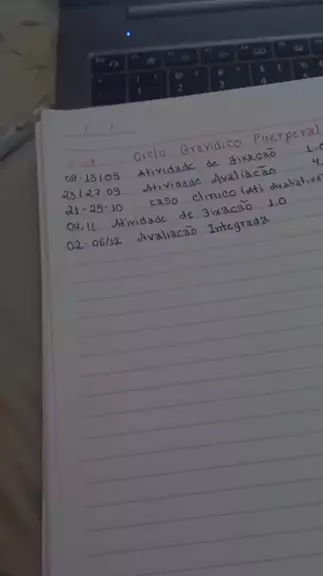 Ciclo Gravidico Puerperal
09-13/09 Atividade de fixação 1.0
23/27.09 Atividade Avaliação 4.
21-25-10 caso clinico (Ati Avaliativa
04.11 Atividade de Fixação 1.0
02-06/12 Avaliação Integrada